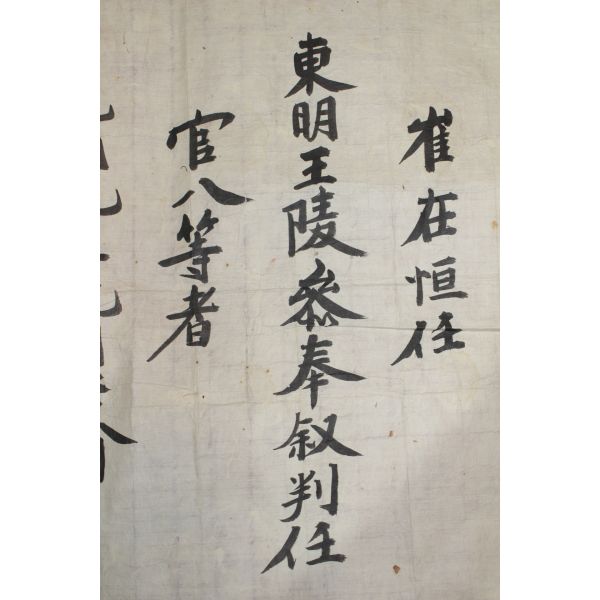 崔在恒任
東明王陵叅奉叙判任
官八等者